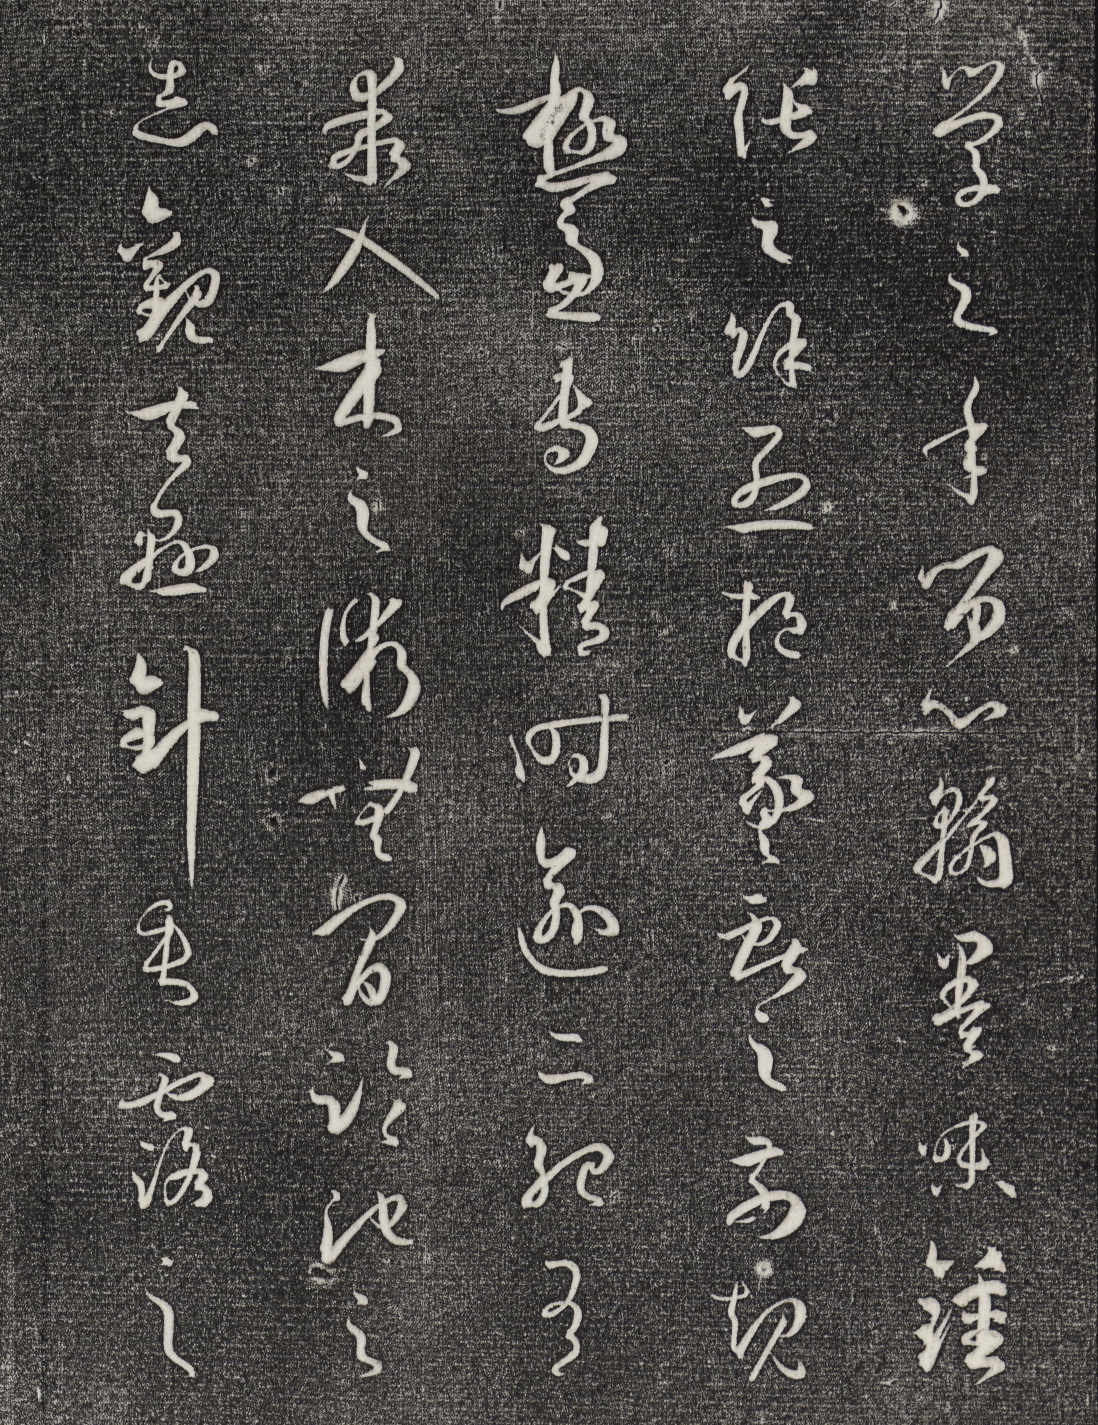 學之年留心翰墨味鍾
張之餘烈挹羲獻之前規
極慮專精時逾二紀有
乖入木之術無間臨池之
志觀夫懸針垂露之